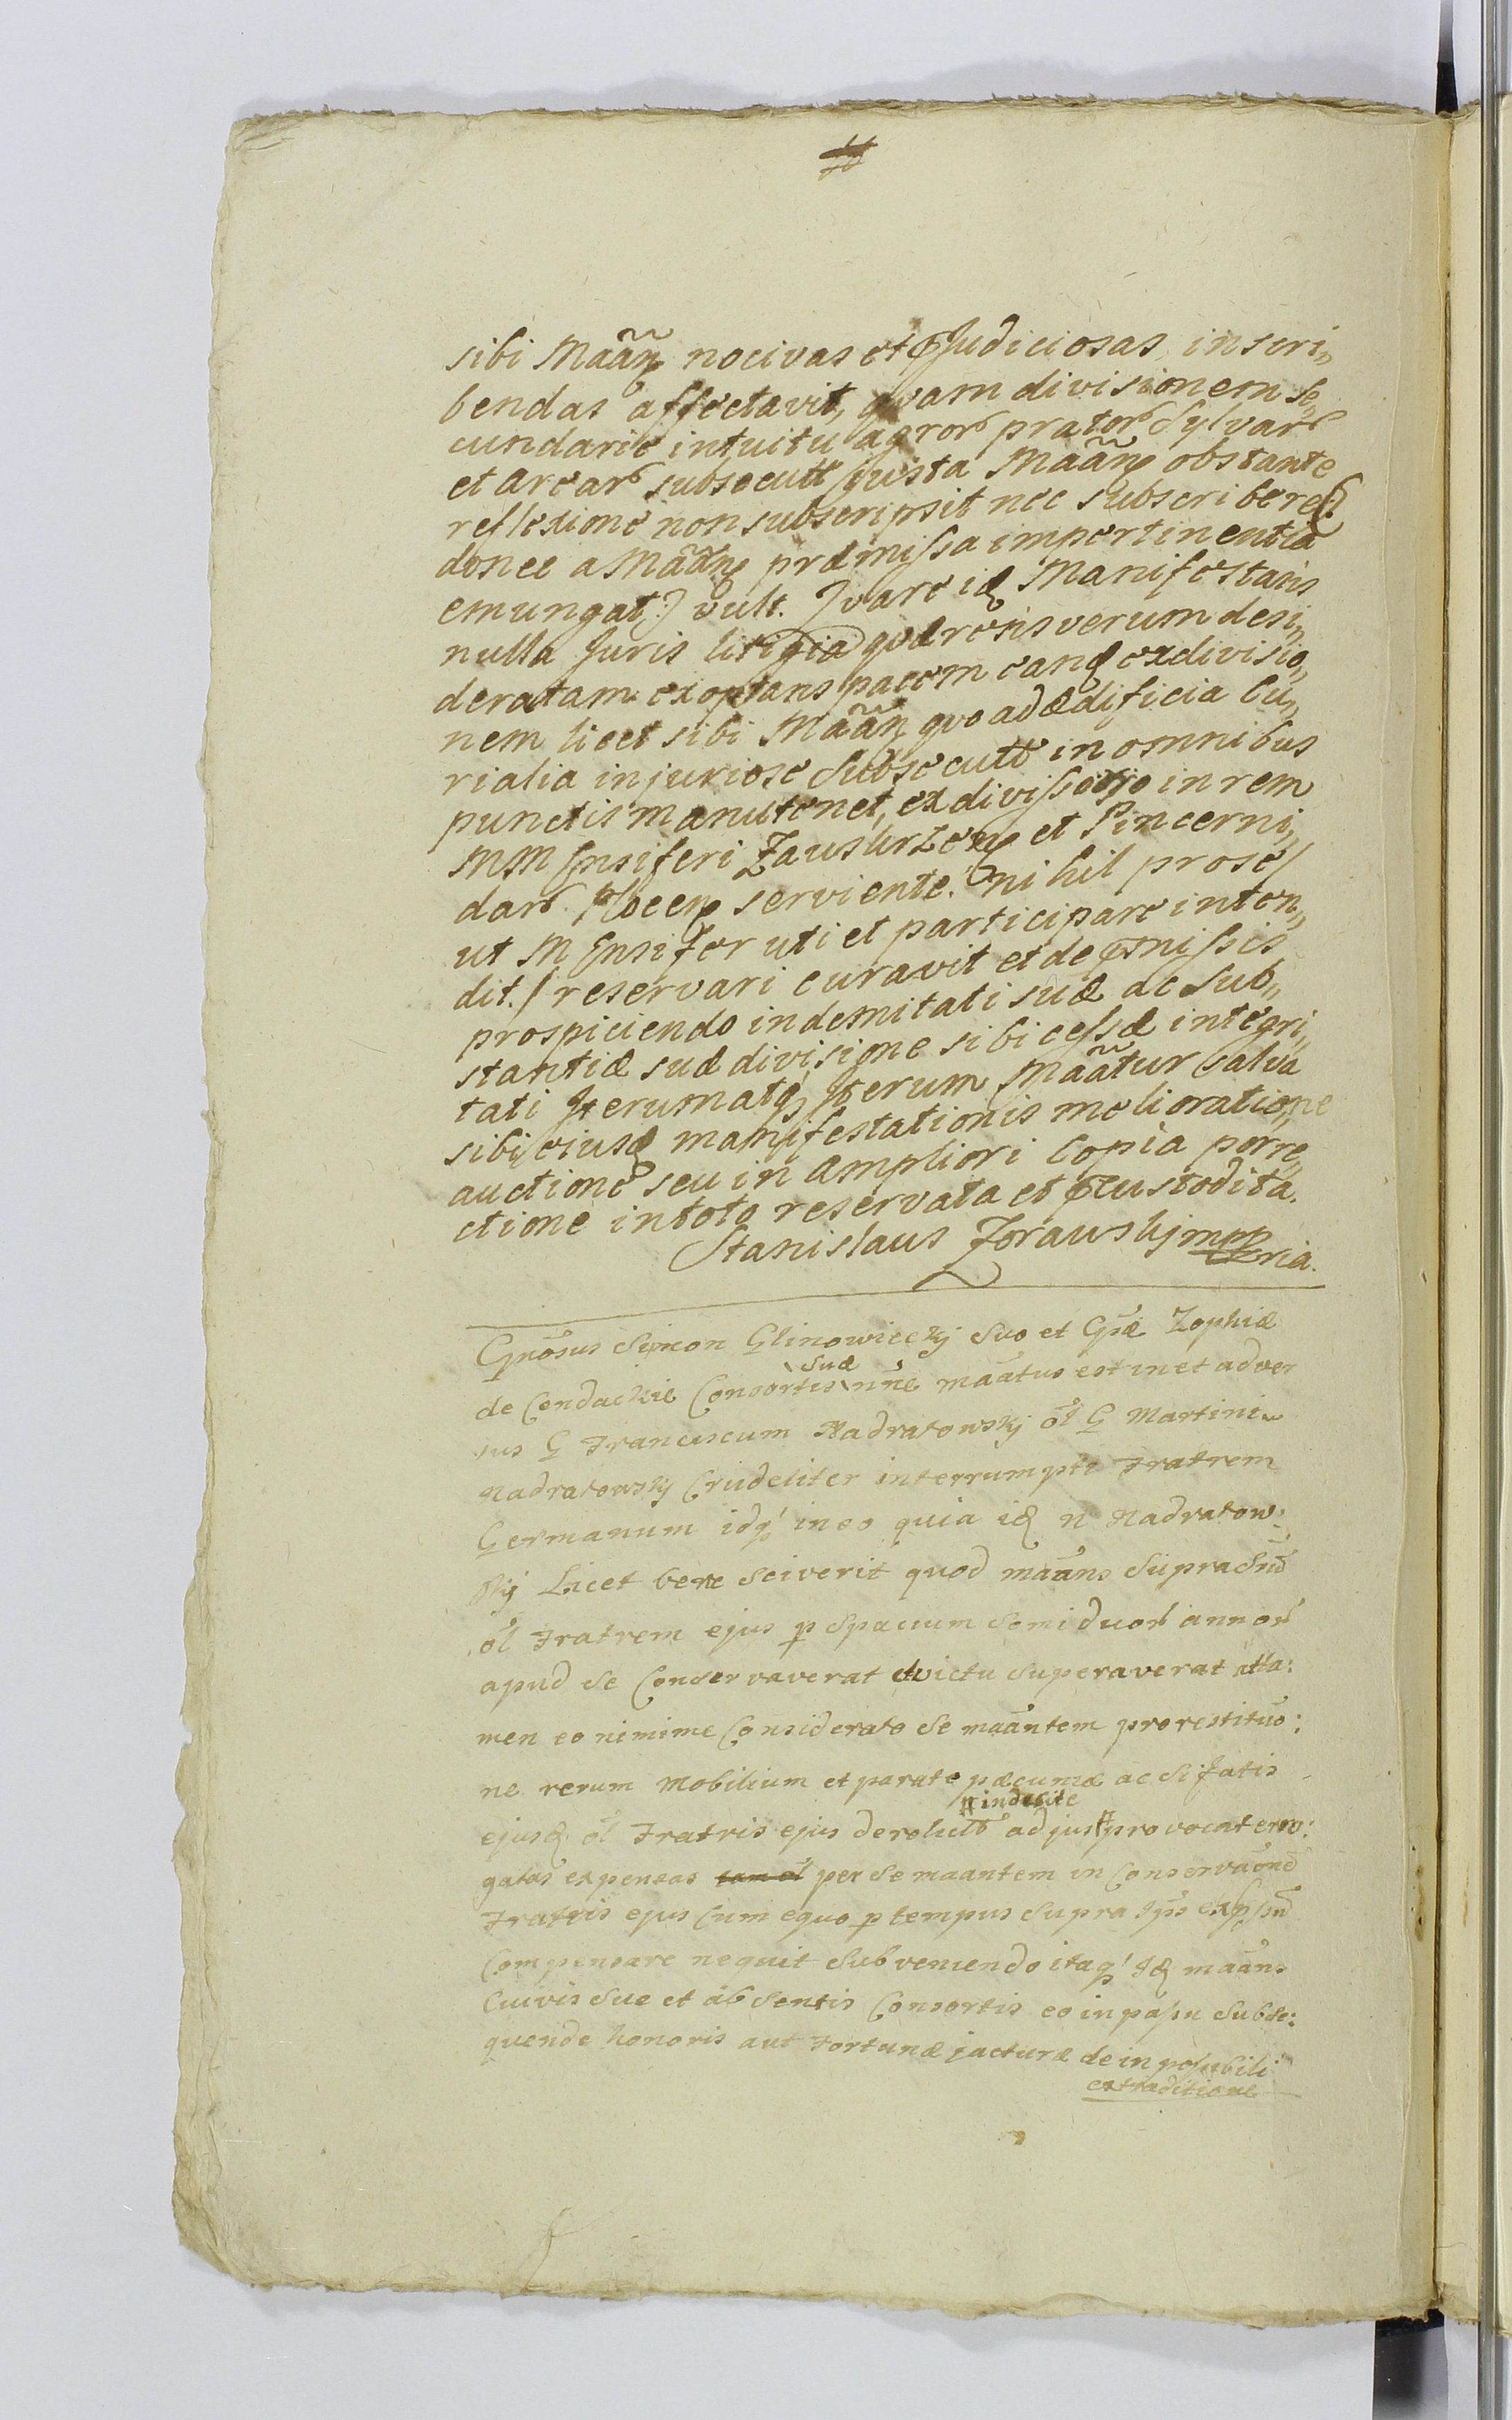 sibi Maãn nocivas et pJudiciosas inscri„
bendas affectavit, qvam divisionem se„
cundario intuitu agror prator Sylvar
et arear subsecutt justa Maãn obstante
reflexione non subscripsit nec subscribere (:
donec a Maãn præmissa impertinentia
emungat:) vult. Qvare id Manifestans
nulla Juris litigia qværens verum desi„
deratam exoptans pacem eand exdivisio„
nem licet sibi Maãn qvo ad ædificia Cu„
rialia injuriose Subsecutt in omnibus
punctis manutenet, exdivissorio in rem
MM Ensiferi Zauskrzen et Pincerni„
dar Plocen serviente. nihil prose /
ut M Ensifer uti et participare inten„
dit. / reservari curavit et de pmissis
prospiciendo indemnitati suæ ac Sub„
stantiæ suæ divisione sibi cessæ integri„
tati Iterumatq Iterum Maãtur salva
sibi eiusd manifestationis melioratione
auctione seu in ampliori Copia porre„
ctione in toto reservata et pcustodita.
Stanislaus Zorawskj mppria.
Gnõsus Simon Glinowieckj Suo et Gsæ Zophiæ
de Cendackie Consortis \suæ\ nñe maãtus est in et adver
sus G Franciscum Nadratowskj õl G Martini
Nadratowskj Crudeliter interrumpti Fratrem
Germanum idq' in eo quia id N Nadratow:
skj Licet bene sciverit quod maãns Supra
õl Fratrem ejus p Spacium Semi duor annor
apud se Conservaverat victu Superaverat atta:
men eo nimime Considerato se maãntem pro restituõ:
ne rerum Mobilium et parate pæcuniæ ac si fatis
ejusd õl Fratris ejus derolutt ad jus # #indebite provocat erro:
gatas expensas tam õl per se maantem in Conservãone
Fratris ejus Cum equo p tempus Supra
Compensare nequit Subveniendo itaq' Id maãns
Cuivis sue et absentis Consortis eo in passu Subse:
quende honoris aut Fortunæ jacturæ de in possibili
extraditione